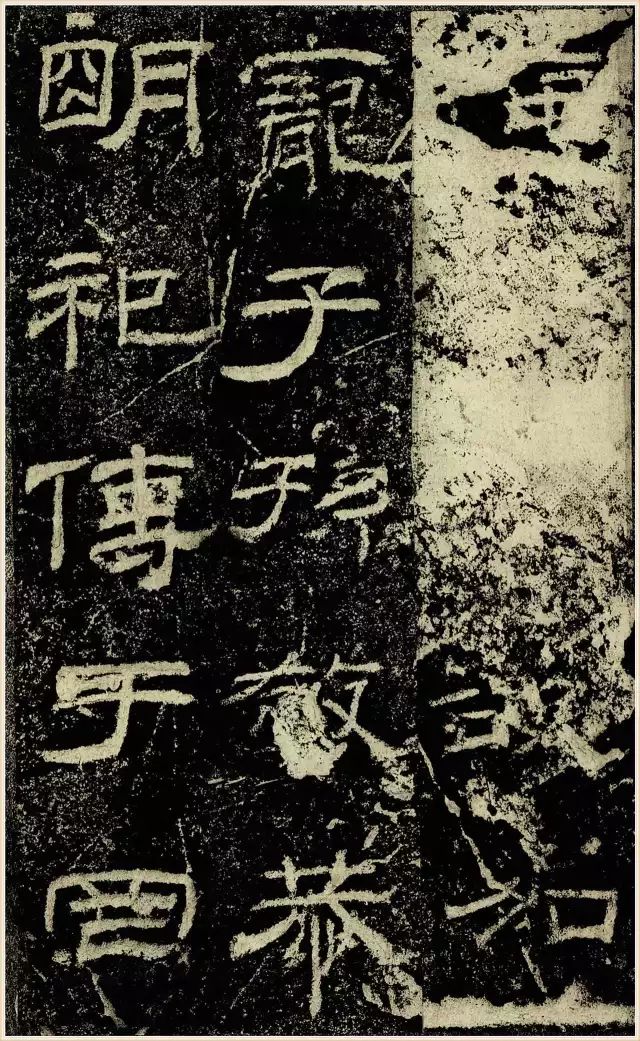 和
寵子孫敬恭
明祀傳于罔